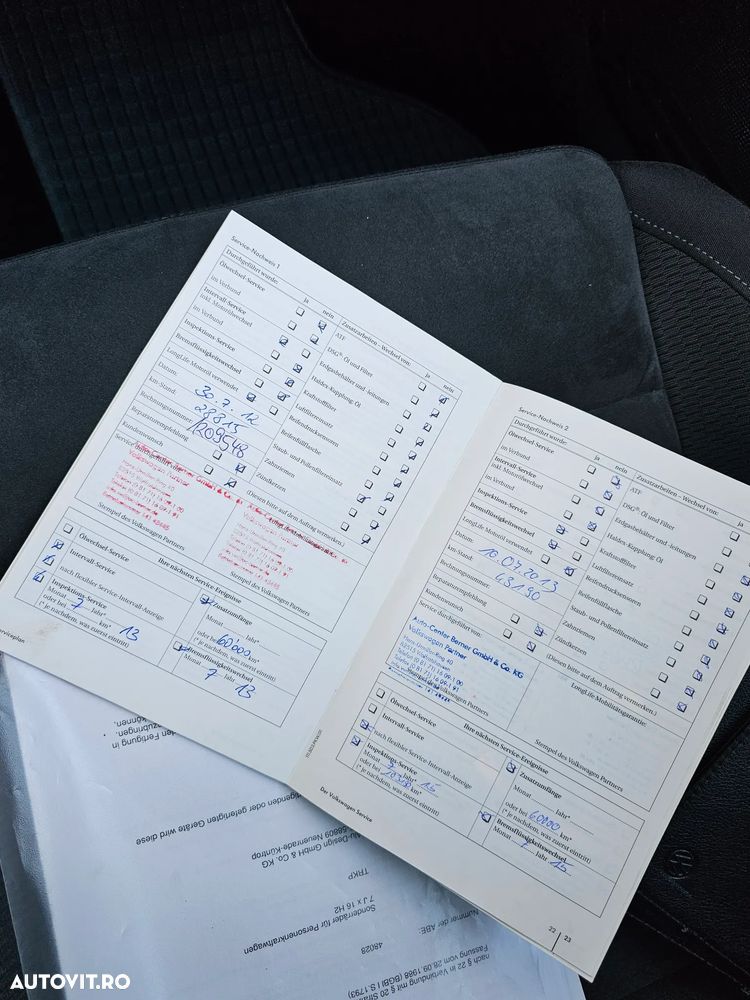 Service-Nachweis 1
Durchgeführt wurde:
ja
nein
Zusatzarbeiten – Wechsel von:
ja
nein
Ölwechsel-Service
im Verbund
Intervall-Service
inkl. Motorölwechsel
im Verbund
Inspektions-Service
Bremsflüssigkeitswechsel
LongLife Motoröl verwendet
Datum:
30.7.12
km-Stand:
28815
Rechnungsnummer:
1209548
Reparaturempfehlung
Kundenwunsch
ATF
DSG®-Öl und Filter
Erdgasbehälter und -leitungen
Haldex-Kupplung: Öl
Kraftstofffilter
Luftfiltereinsatz
Reifendruckseasoren
Reifenfüllflasche
Staub- und Pollenfiltereinsatz
Zahnriemen
Zündkerzen
(Diesen bitte auf dem Auftrag vermerken.)
Stempel des Volkswagen Partners
Stempel des Volkswagen Partners
Ihre nächsten Service-Ereignisse
Ölwechsel-Service
Intervall-Service
nach flexibler Service-Intervall-Anzeige
Inspektions-Service
Monat 7 Jahr* 13
oder bei km*
(* je nachdem, was zuerst eintritt)
Zusatzumfänge
Monat Jahr*
oder bei 60000 km*
(* je nachdem, was zuerst eintritt)
Bremsflüssigkeitswechsel
Monat 7 Jahr 13
Service-Nachweis 2
Durchgeführt wurde:
ja
nein
Zusatzarbeiten – Wechsel von:
ja
Ölwechsel-Service
im Verbund
Intervall-Service
inkl. Motorölwechsel
im Verbund
Inspektions-Service
Bremsflüssigkeitswechsel
LongLife Motoröl verwendet
Datum:
10.07.2013
km-Stand:
43190
Rechnungsnummer:
Reparaturempfehlung
Kundenwunsch
Service durchgeführt von:
Auto-Center Berner GmbH & Co. KG
Volkswagen Partner
ATF
DSG®-Öl und Filter
Erdgasbehälter und -leitungen
Haldex-Kupplung: Öl
Kraftstofffilter
Luftfiltereinsatz
Reifendrucksensoren
Reifenfüllflasche
Staub- und Pollenfiltereinsatz
Zahnriemen
Zündkerzen
(Diesen bitte auf dem Auftrag vermerken.)
LongLife Mobilitätsgarantie:
Stempel des Volkswagen Partners
Ihre nächsten Service-Ereignisse
Ölwechsel-Service
Intervall-Service
nach flexibler Service-Intervall-Anzeige
Inspektions-Service
Monat 7 Jahr* 15
(* je nachdem, was zuerst eintritt)
Zusatzumfänge
Monat Jahr*
oder bei 60000 km*
(* je nachdem, was zuerst eintritt)
Bremsflüssigkeitswechsel
Monat 7 Jahr 15
Der Volkswagen Service
22
23
nach § 22 in Verbindung mit § 20
Fassung vom 28.09.1988 (BGBl I S.1793)
Nummer der ABE:
48028
Sonderräder für Personenkraftwagen
7 J x 16 H2
TRKP
58809 Neuenrade-Küntrop
AUTOVIT.RO